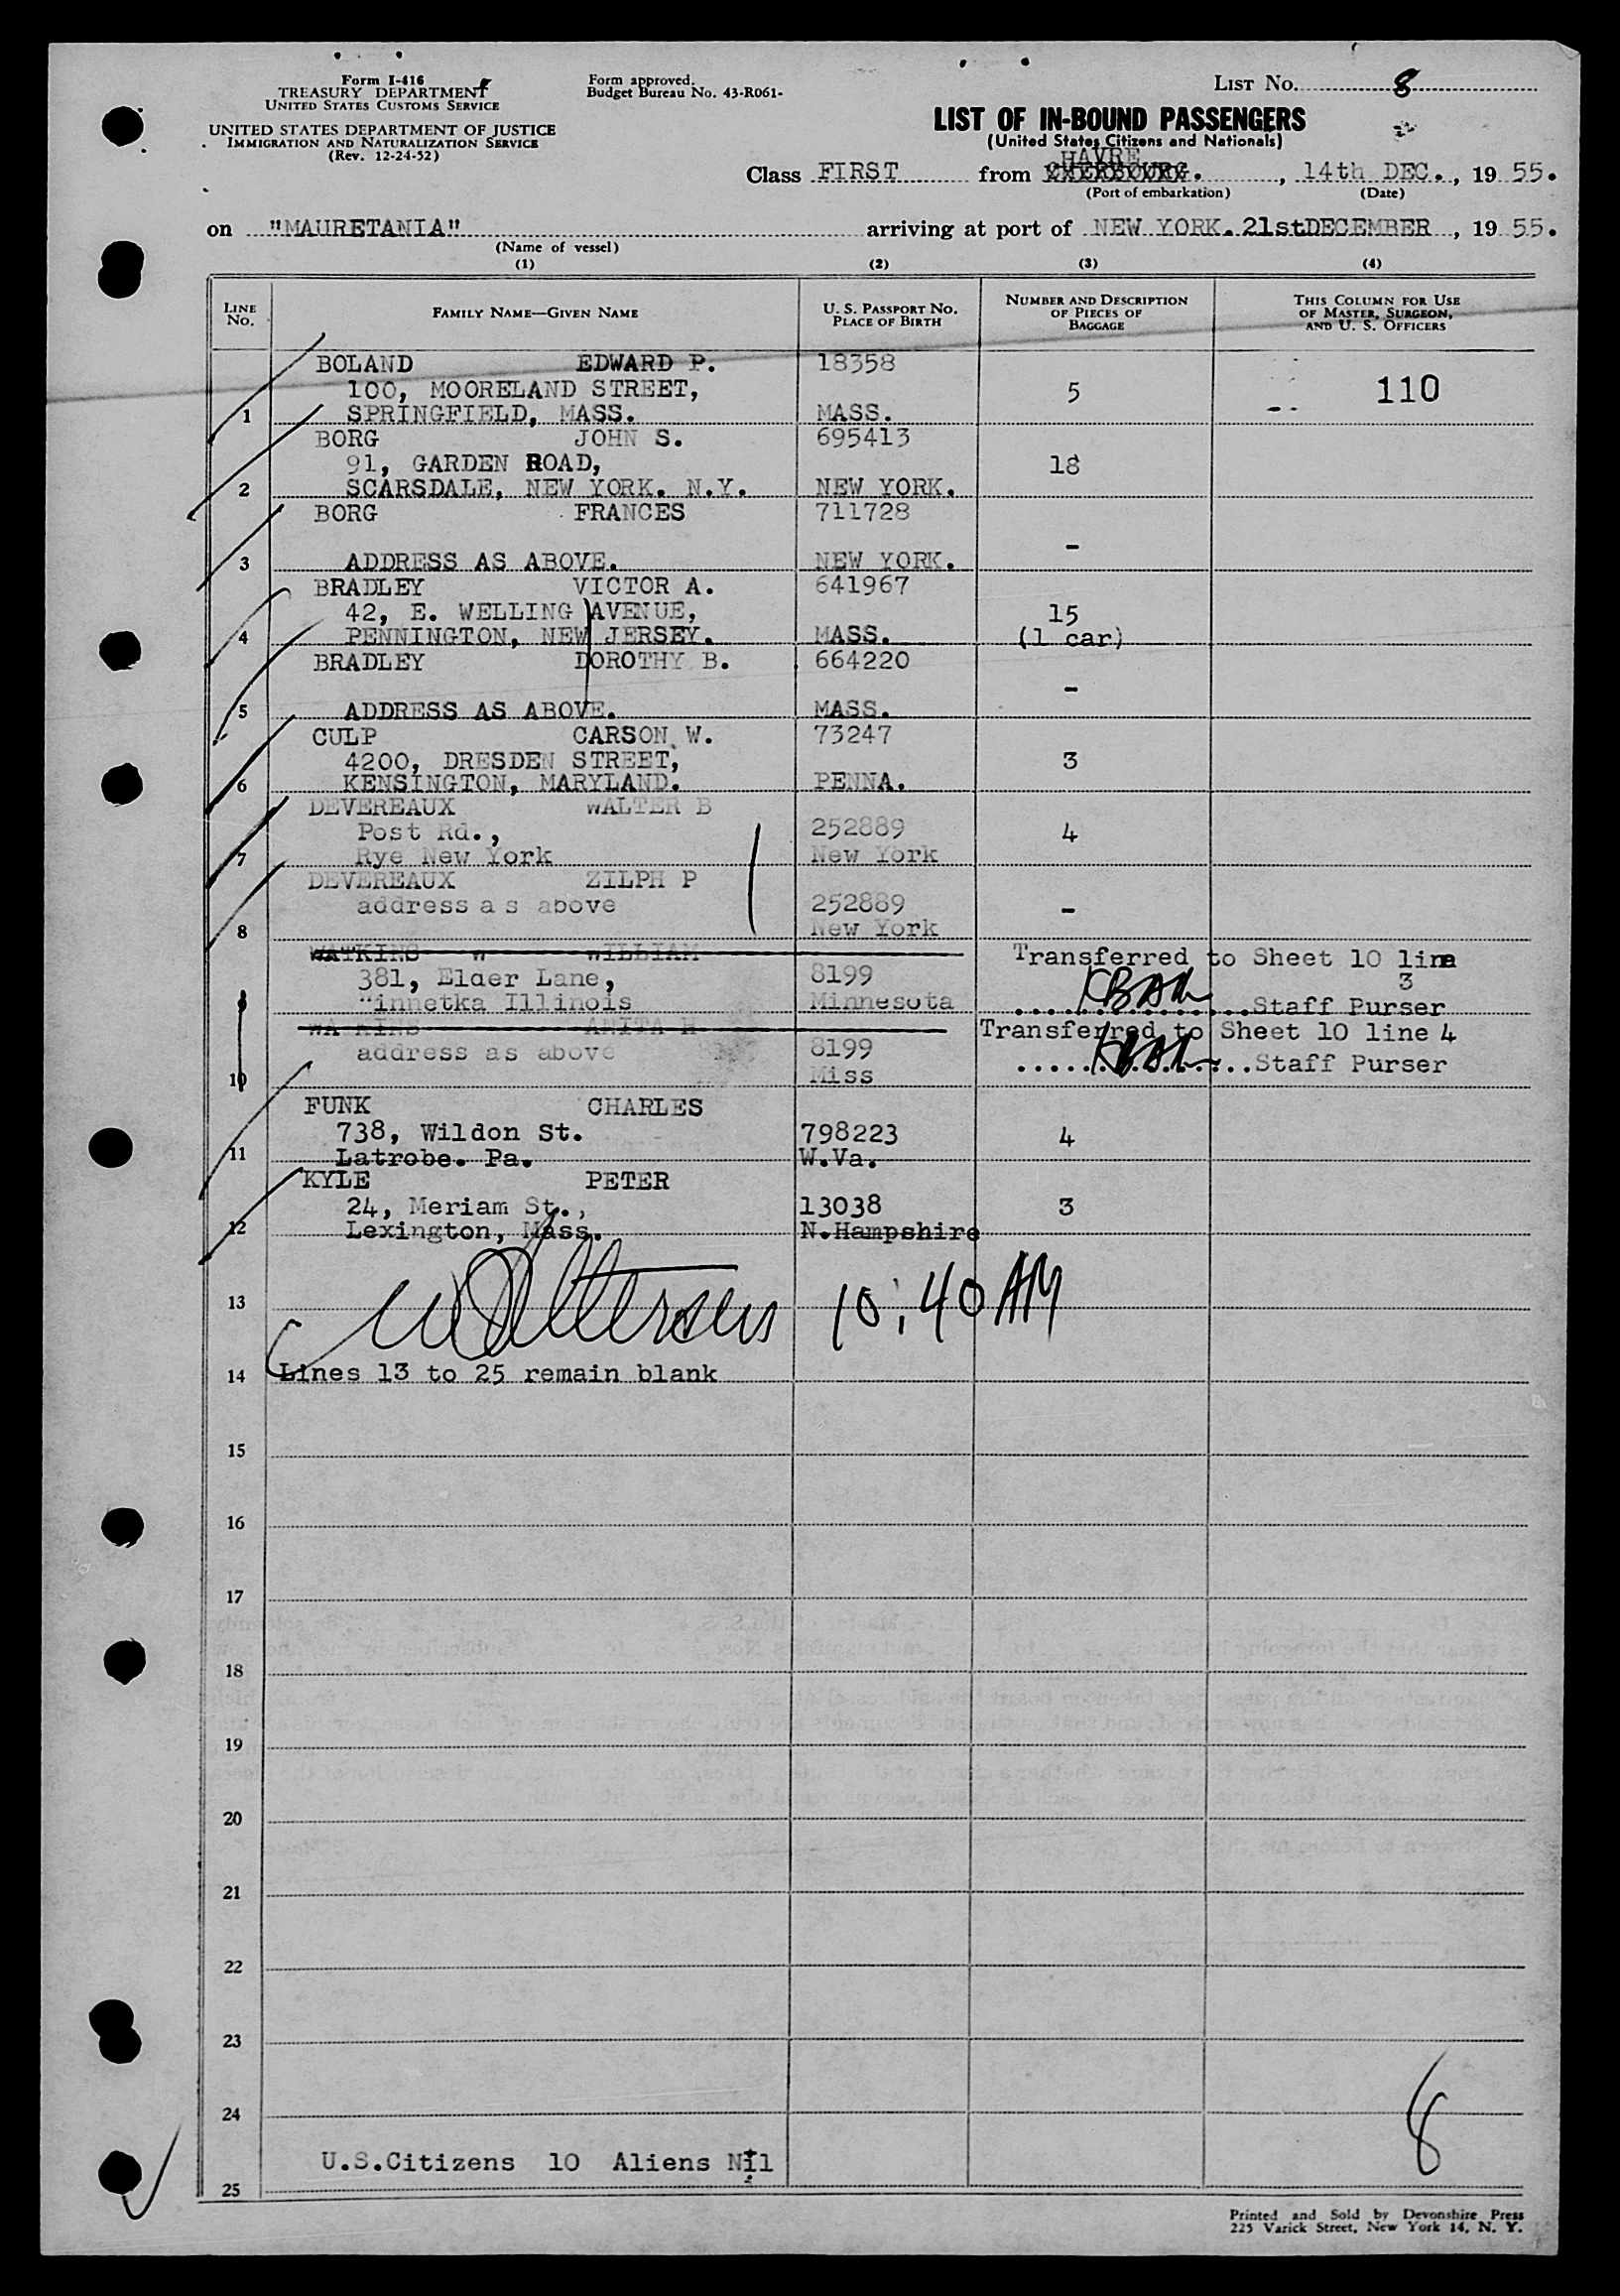 Form I-416
TREASURY DEPARTMENT
UNITED STATES CUSTOMS SERVICE
UNITED STATES DEPARTMENT OF JUSTICE
IMMIGRATION AND NATURALIZATION SERVICE
(Rev. 12-24-52)
Form approved.
Budget Bureau No. 43-R061-
LIST No. 8
LIST OF IN-BOUND PASSENGERS
(United States Citizens and Nationals)
HAVRE
Class FIRST from CHERBOURG. , 14th DEC. , 19 55.
(Port of embarkation) (Date)
on "MAURETANIA" arriving at port of NEW YORK. 21stDECEMBER , 19 55.
(Name of vessel)
(1) (2) (3) (4)
LINE No. FAMILY NAME—GIVEN NAME U. S. PASSPORT NO. PLACE OF BIRTH NUMBER AND DESCRIPTION OF PIECES OF BAGGAGE THIS COLUMN FOR USE OF MASTER, SURGEON, AND U. S. OFFICERS
BOLAND EDWARD P. 18358
100, MOORELAND STREET, 5 110
1 SPRINGFIELD, MASS. MASS.
BORG JOHN S. 695413
91, GARDEN ROAD, 18
2 SCARSDALE, NEW YORK. N.Y. NEW YORK.
BORG FRANCES 711728
-
3 ADDRESS AS ABOVE. NEW YORK.
BRADLEY VICTOR A. 641967
42, E. WELLING AVENUE, 15
4 PENNINGTON, NEW JERSEY. MASS. (1 car)
BRADLEY DOROTHY B. 664220
-
5 ADDRESS AS ABOVE. MASS.
CULP CARSON W. 73247
4200, DRESDEN STREET, 3
6 KENSINGTON, MARYLAND. PENNA.
DEVEREAUX WALTER B
Post Rd., 252889 4
7 Rye New York New York
DEVEREAUX ZILPH P
address as above 252889 -
8 New York
WATKINS W WILLIAM Transferred to Sheet 10 line
381, Elder Lane, 8199 3
9 innetka Illinois Minnesota ...............Staff Purser
WA KINS ANITA H Transferred to Sheet 10 line 4
address as above 8199 ...............Staff Purser
10 Miss
FUNK CHARLES
738, Wildon St. 798223 4
11 Latrobe. Pa. W.Va.
KYLE PETER
24, Meriam St., 13038 3
12 Lexington, Mass. N.Hampshire
13 10:40 AM
14 Lines 13 to 25 remain blank
15
16
17
18
19
20
21
22
23
24
8
U.S.Citizens 10 Aliens Nil
25
Printed and Sold by Devonshire Press
225 Varick Street, New York 14, N. Y.